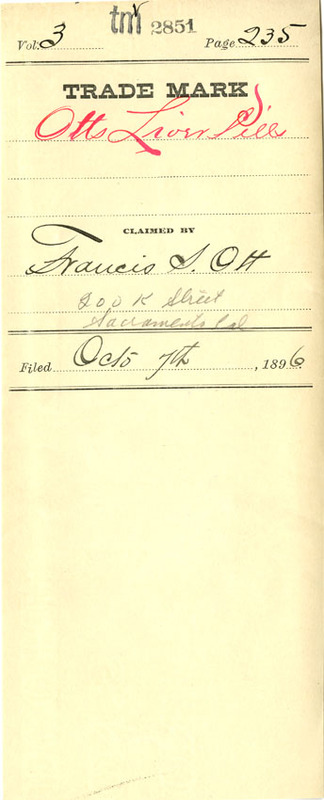 tm 2851
Vol. 3 Page 235
TRADE MARK
Otts Liver Pills
CLAIMED BY
Francis S. Ott
200 K Street
Sacramento Cal
Filed Octo 7th, 1896.